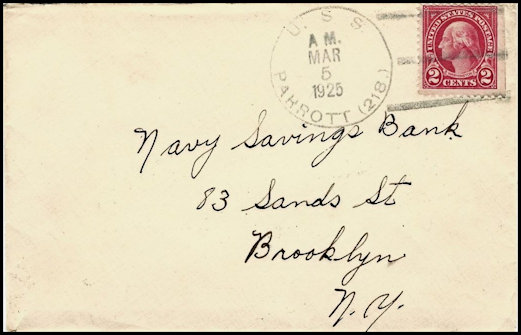 U. S. S.
A M.
MAR
5
1925
PARROTT (218.)
UNITED STATES POSTAGE
2 CENTS 2
Navy Savings Bank
83 Sands St
Brooklyn
N. Y.